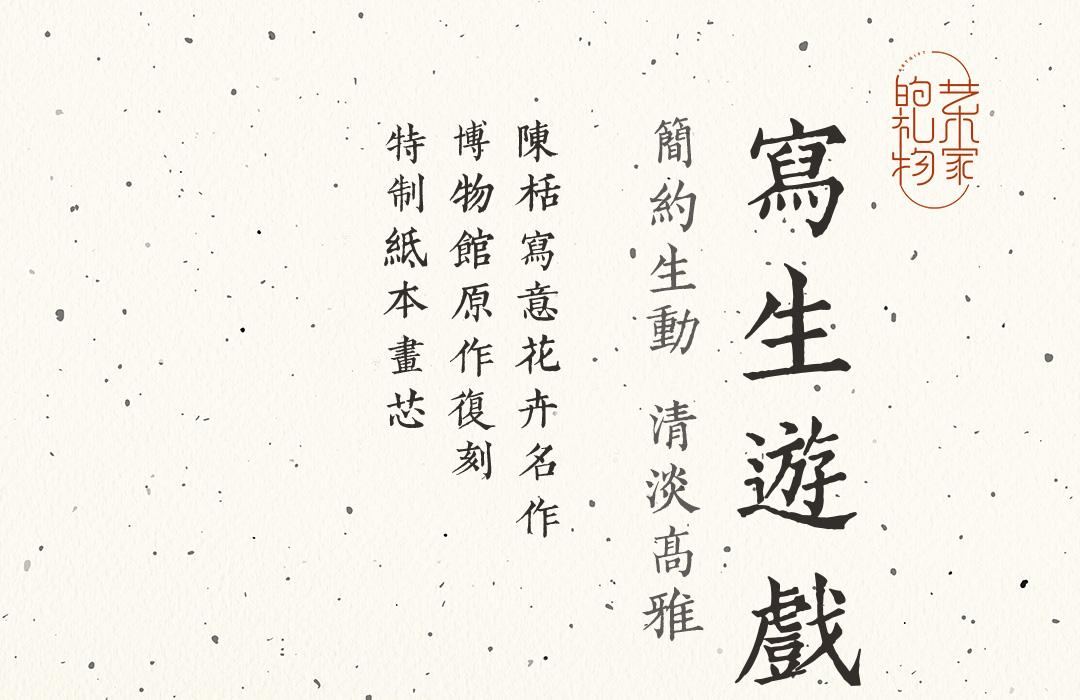 艺术家
的礼物
寫生遊戲
簡約生動 清淡髙雅
陳栝寫意花卉名作
博物館原作復刻
特制紙本畫芯